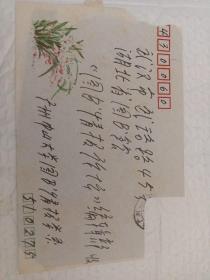 430060
武汉市武珞路45号
湖北省图书馆
《图书情报论坛》编辑部 收
广州中山大学图书情报学系
510275